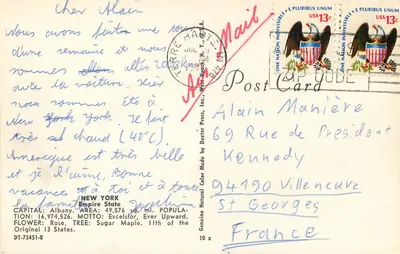 Cher Alain
Nous avons faite une tour
d'une semaine et nous
sommes allés
avec la voiture. Hier
nous sommes été à
New York. Il fait
très chaud (40°C).
Amérique est très belle
et je l'aime. Bonne
vacances à toi et à toute
la famille
NEW YORK
Empire State
CAPITAL: Albany. AREA: 49,576 sq. mi. POPULA-
TION: 16,974,526. MOTTO: Excelsior, Ever Upward.
FLOWER: Rose, TREE: Sugar Maple, 11th of the
Original 13 States.
DT-75451-B
10 x
Genuine Natural Color Made by Dexter Press, Inc.
Air Mail
TERRE HAUTE
ZIP CODE
ONE NATION INDIVISIBLE
E PLURIBUS UNUM
USA 13c
ONE NATION INDIVISIBLE
E PLURIBUS UNUM
USA 13c
Post Card
Alain Manière
69 Rue de Président
Kennedy
94190 Villeneuve
St Georges
France